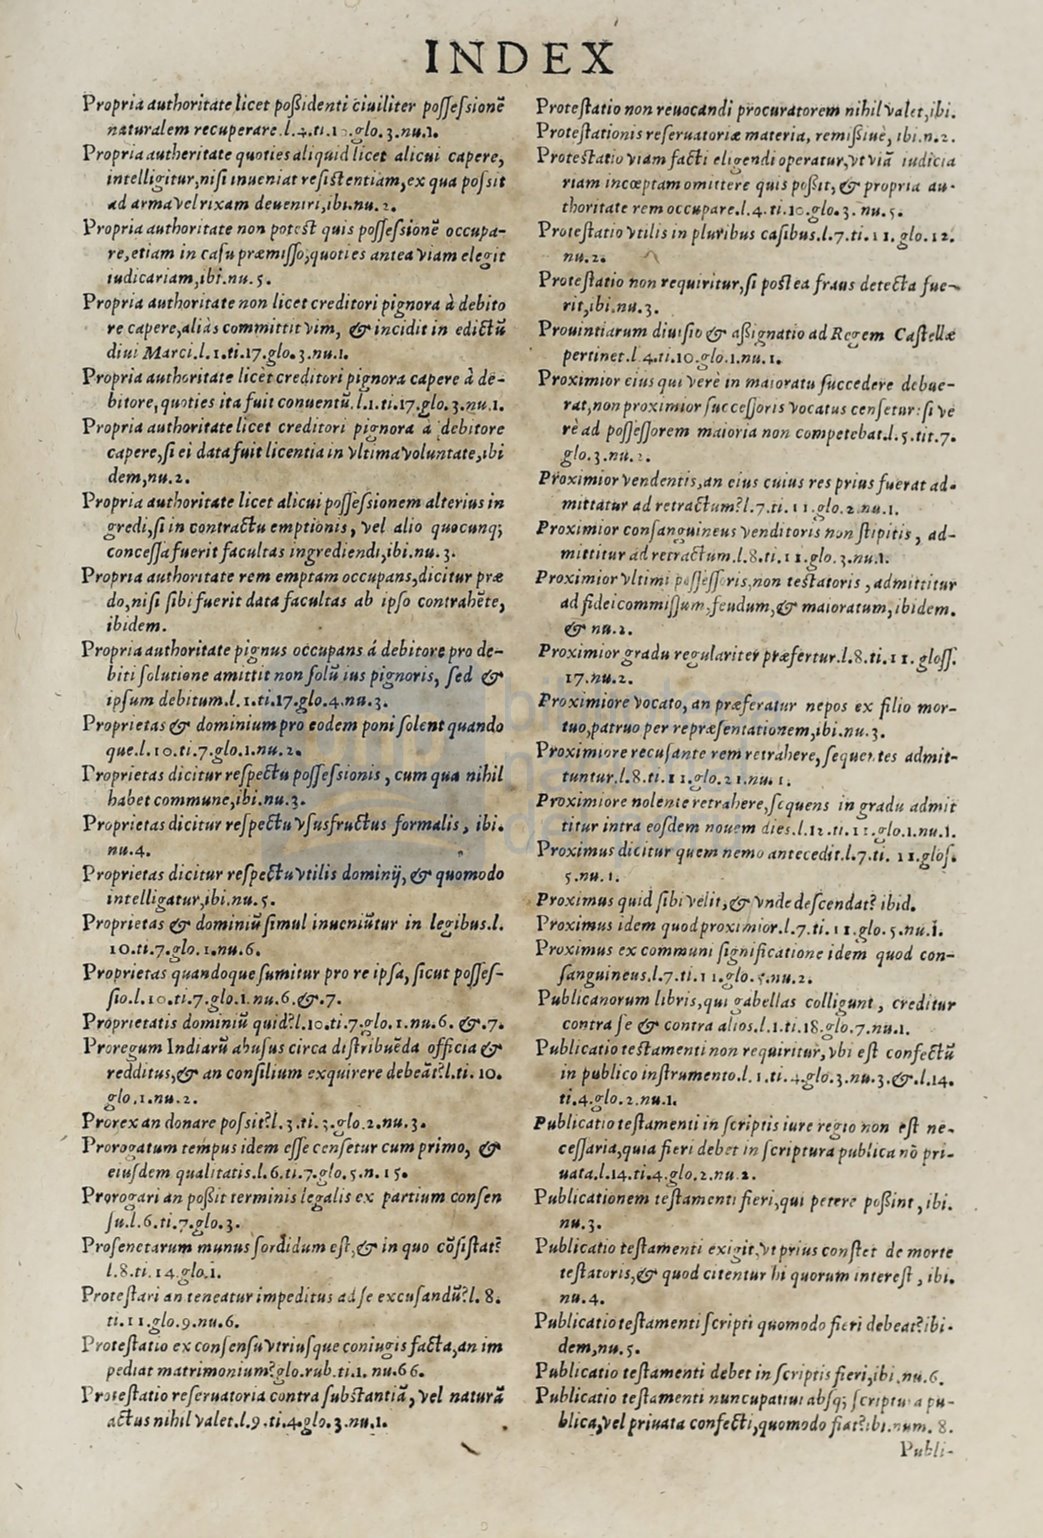 INDEX
Propria authoritate licet poßidenti ciuiliter poſſeſsionẽ
naturalem recuperare.l.4.ti.10.glo.3.nu.1.
Propria autheritate quoties aliquid licet alicui capere,
intelligitur,niſi inueniat reſiſtentiam,ex qua poſsit
ad arma vel rixam deueniri,ibi.nu.2.
Propria authoritate non poteſt quis poſſeſsionẽ occupa-
re,etiam in caſu præmiſſo,quoties antea viam elegit
iudicariam,ibi.nu.5.
Propria authoritate non licet creditori pignora à debito
re capere,aliàs committit vim, & incidit in edictũ
diui Marci.l.1.ti.17.glo.3.nu.1.
Propria authoritate licèt creditori pignora capere à de-
bitore,quoties ita fuit conuentũ.l.1.ti.17.glo.3.nu.1.
Propria authoritate licet creditori pignora à debitore
capere,ſi ei data fuit licentia in vltima voluntate,ibi
dem,nu.2.
Propria authoritate licet alicui poſſeſsionem alterius in
gredi,ſi in contractu emptionis, vel alio quocunq;
conceſſa fuerit facultas ingrediendi,ibi.nu.3.
Propria authoritate rem emptam occupans,dicitur præ
do,niſi ſibi fuerit data facultas ab ipſo contrahẽte,
ibidem.
Propria authoritate pignus occupans á debitore pro de-
biti ſolutione amittit non ſolũ ius pignoris, ſed &
ipſum debitum.l.1.ti.17.glo.4.nu.3.
Proprietas & dominium pro eodem poni ſolent quando
que.l.10.ti.7.glo.1.nu.2.
Proprietas dicitur reſpectu poſſeſsionis, cum qua nihil
habet commune,ibi.nu.3.
Proprietas dicitur reſpectu vſusfructus formalis, ibi.
nu.4.
Proprietas dicitur reſpectu vtilis dominij, & quomodo
intelligatur,ibi.nu.5.
Proprietas & dominiũ ſimul inueniũtur in legibus.l.
10.ti.7.glo.1.nu.6.
Proprietas quandoque ſumitur pro re ipſa, ſicut poſſeſ-
ſio.l.10.ti.7.glo.1.nu.6.&.7.
Proprietatis dominiũ quid?l.10.ti.7.glo.1.nu.6. &.7.
Proregum Indiarũ abuſus circa diſtribuẽda officia &
redditus,& an conſilium exquirere debeãt?l.ti.10.
glo.1.nu.2.
Prorex an donare poſsit?l.3.ti.3.glo.2.nu.3.
Prorogatum tempus idem eſſe cenſetur cum primo, &
eiuſdem qualitatis.l.6.ti.7.glo.5.n.15.
Prorogari an poßit terminis legalis ex partium conſen
ſu.l.6.ti.7.glo.3.
Proſenetarum munus ſordidum eſt,& in quo cõſiſtat?
l.8.ti.14.glo.1.
Proteſtari an teneatur impeditus ad ſe excuſandũ?l.8.
ti.11.glo.9.nu.6.
Proteſtatio ex conſenſu vtriuſque coniugis facta,an im
pediat matrimonium?glo.rub.ti.1.nu.66.
Proteſtatio reſeruatoria contra ſubſtantiã, vel naturã
actus nihil valet.l.9.ti.4.glo.3.nu.1.
Proteſtatio non reuocandi procuratorem nihil valet,ibi.
Proteſtationis reſeruatoriæ materia, remißiuè, ibi.n.2.
Proteſtatio viam facti eligendi operatur,vt viã iudicia
riam incœptam omittere quis poßit, & propria au-
thoritate rem occupare.l.4.ti.10.glo.3.nu.5.
Proteſtatio vtilis in pluribus caſibus.l.7.ti.11.glo.12.
nu.2.
Proteſtatio non requiritur,ſi poſtea fraus detecta fue-
rit,ibi.nu.3.
Prouintiarum diuiſio & aßignatio ad Regem Caſtellæ
pertinet.l.4.ti.10.glo.1.nu.1.
Proximior eius qui verè in maioratu ſuccedere debue-
rat,non proximior ſucceſſoris vocatus cenſetur:ſi ve
rè ad poſſeſſorem maioria non competebat.l.5.tit.7.
glo.3.nu.2.
Proximior vendentis,an eius cuius res prius fuerat ad-
mittatur ad retractum?l.7.ti.11.glo.2.nu.1.
Proximior conſanguineus venditoris non ſtipitis, ad-
mittitur ad retractum.l.8.ti.11.glo.3.nu.1.
Proximior vltimi poſſeſſoris,non teſtatoris, admittitur
ad fideicommiſſum,feudum,& maioratum,ibidem.
& nu.2.
Proximior gradu regulariter præfertur.l.8.ti.11.gloſſ.
17.nu.2.
Proximiore vocato, an præferatur nepos ex filio mor-
tuo,patruo per repræſentationem,ibi.nu.3.
Proximiore recuſante rem retrahere,ſequentes admit-
tuntur.l.8.ti.11.glo.21.nu.1.
Proximiore nolente retrahere,ſequens in gradu admit
titur intra eoſdem nouem dies.l.12.ti.11.glo.1.nu.1.
Proximus dicitur quem nemo antecedit.l.7.ti.11.gloſ.
5.nu.1.
Proximus quid ſibi velit,& vnde deſcendat? ibid.
Proximus idem quod proximior.l.7.ti.11.glo.5.nu.1.
Proximus ex communi ſignificatione idem quod con-
ſanguineus.l.7.ti.11.glo.5.nu.2.
Publicanorum libris,qui gabellas colligunt, creditur
contra ſe & contra alios.l.1.ti.18.glo.7.nu.1.
Publicatio teſtamenti non requiritur,vbi eſt confectũ
in publico inſtrumento.l.1.ti.4.glo.3.nu.3.&.l.14.
ti.4.glo.2.nu.1.
Publicatio teſtamenti in ſcriptis iure regio non eſt ne-
ceſſaria,quia fieri debet in ſcriptura publica nõ pri-
uata.l.14.ti.4.glo.2.nu.2.
Publicationem teſtamenti fieri,qui petere poßint, ibi.
nu.3.
Publicatio teſtamenti exigit,vt prius conſtet de morte
teſtatoris,& quod citentur hi quorum intereſt, ibi.
nu.4.
Publicatio teſtamenti ſcripti quomodo fieri debeat?ibi-
dem,nu.5.
Publicatio teſtamenti debet in ſcriptis fieri,ibi.nu.6.
Publicatio teſtamenti nuncupatiui abſq; ſcriptura pu-
blica,vel priuata confecti,quomodo fiat?ibi.num.8.
Publi-